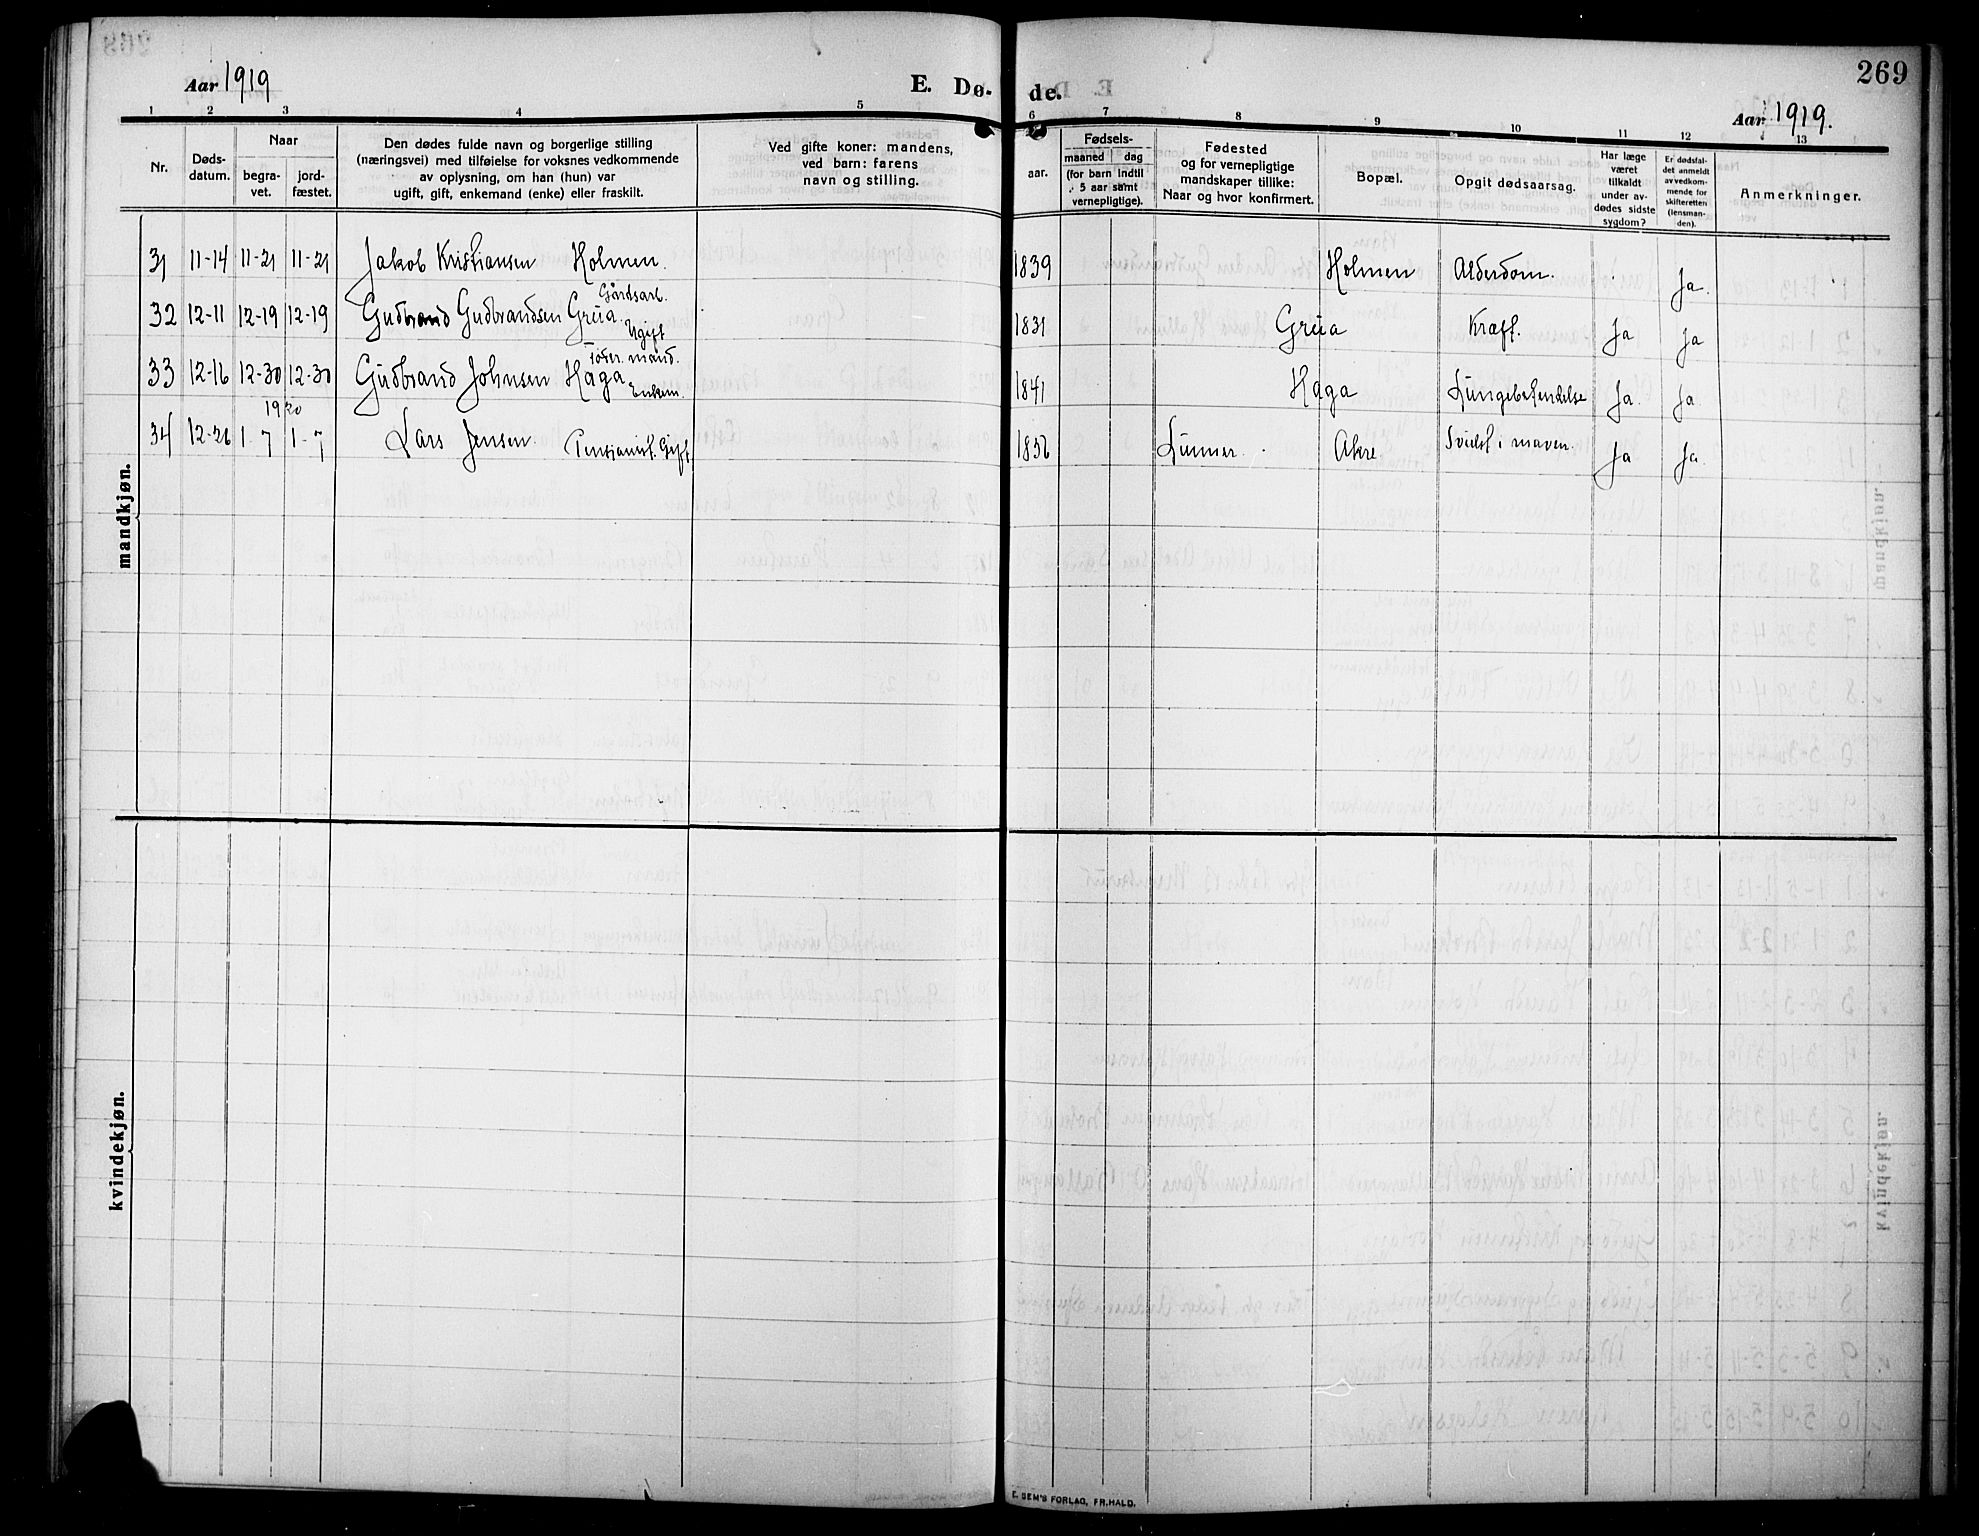 269
Aar 1919
E. Dø- de.
Aar 1919.
1 2 3 4 5 6 7 8 9 10 11 12 13
Nr.
Døds-
datum.
Naar
begra-
vet.
jord-
fæstet.
Den dødes fulde navn og borgerlige stilling
(næringsvei) med tilføielse for voksnes vedkommende
av oplysning, om han (hun) var
ugift, gift, enkemand (enke) eller fraskilt.
Ved gifte koner: mandens,
ved barn: farens
navn og stilling.
Fødsels-
aar.
maaned dag
(for barn indtil
5 aar samt
vernepligtige).
Fødested
og for vernepligtige
mandskaper tillike:
Naar og hvor konfirmert.
Bopæl.
Opgit dødsaarsag.
Har læge
været
tilkaldt
under av-
dødes sidste
sygdom?
Er dødsfal-
det anmeldt
av vedkom-
mende for
skifteretten
(lensman-
den).
Anmerkninger.
mandkjøn.
31 11-14 11-21 11-21 Jakob Kristiansen Holmen. 1839 Holmen Alderdom. Ja.
Gårdsarb.
32 12-11 12-19 12-19 Gudbrand Gudbrandsen Grua. Ugift 1831 Grua Kræft. Ja Ja
33 12-16 12-30 12-30 Gudbrand Johnsen Haga Enkem. 1841 Haga Lungebetendelse Ja. Ja.
1920
34 12-26 1-7 1-7 Lars Jensen. Pensionist. Gift 1856 Lunner. Akre Svulst i maven. Ja Ja.
kvindekjøn.
E. SEM'S FORLAG, FR.HALD.